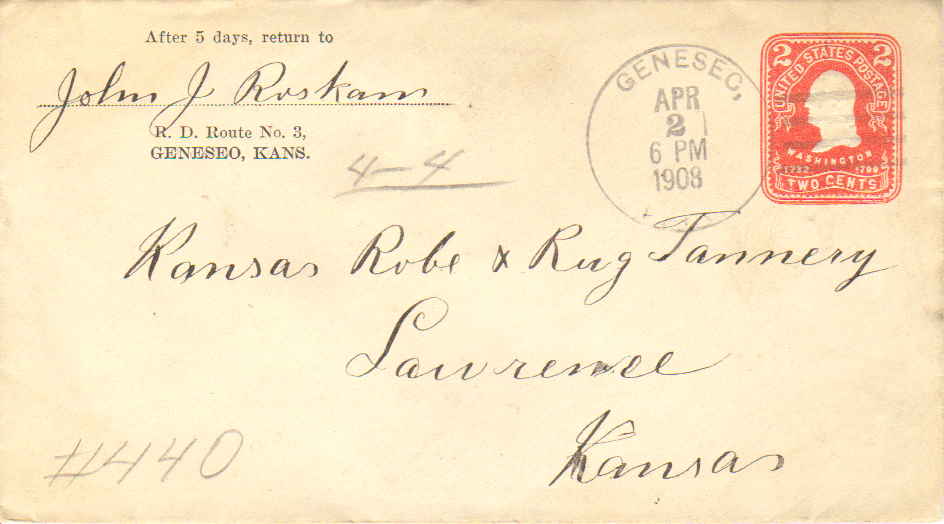 After 5 days, return to
John J Roskam
R. D. Route No. 3,
GENESEO, KANS.
4-4
GENESEO,
APR
2
6 PM
1908
2 UNITED STATES POSTAGE 2
WASHINGTON
1732 1799
TWO CENTS
Kansas Robe & Rug Tannery
Lawrence
Kansas
#440